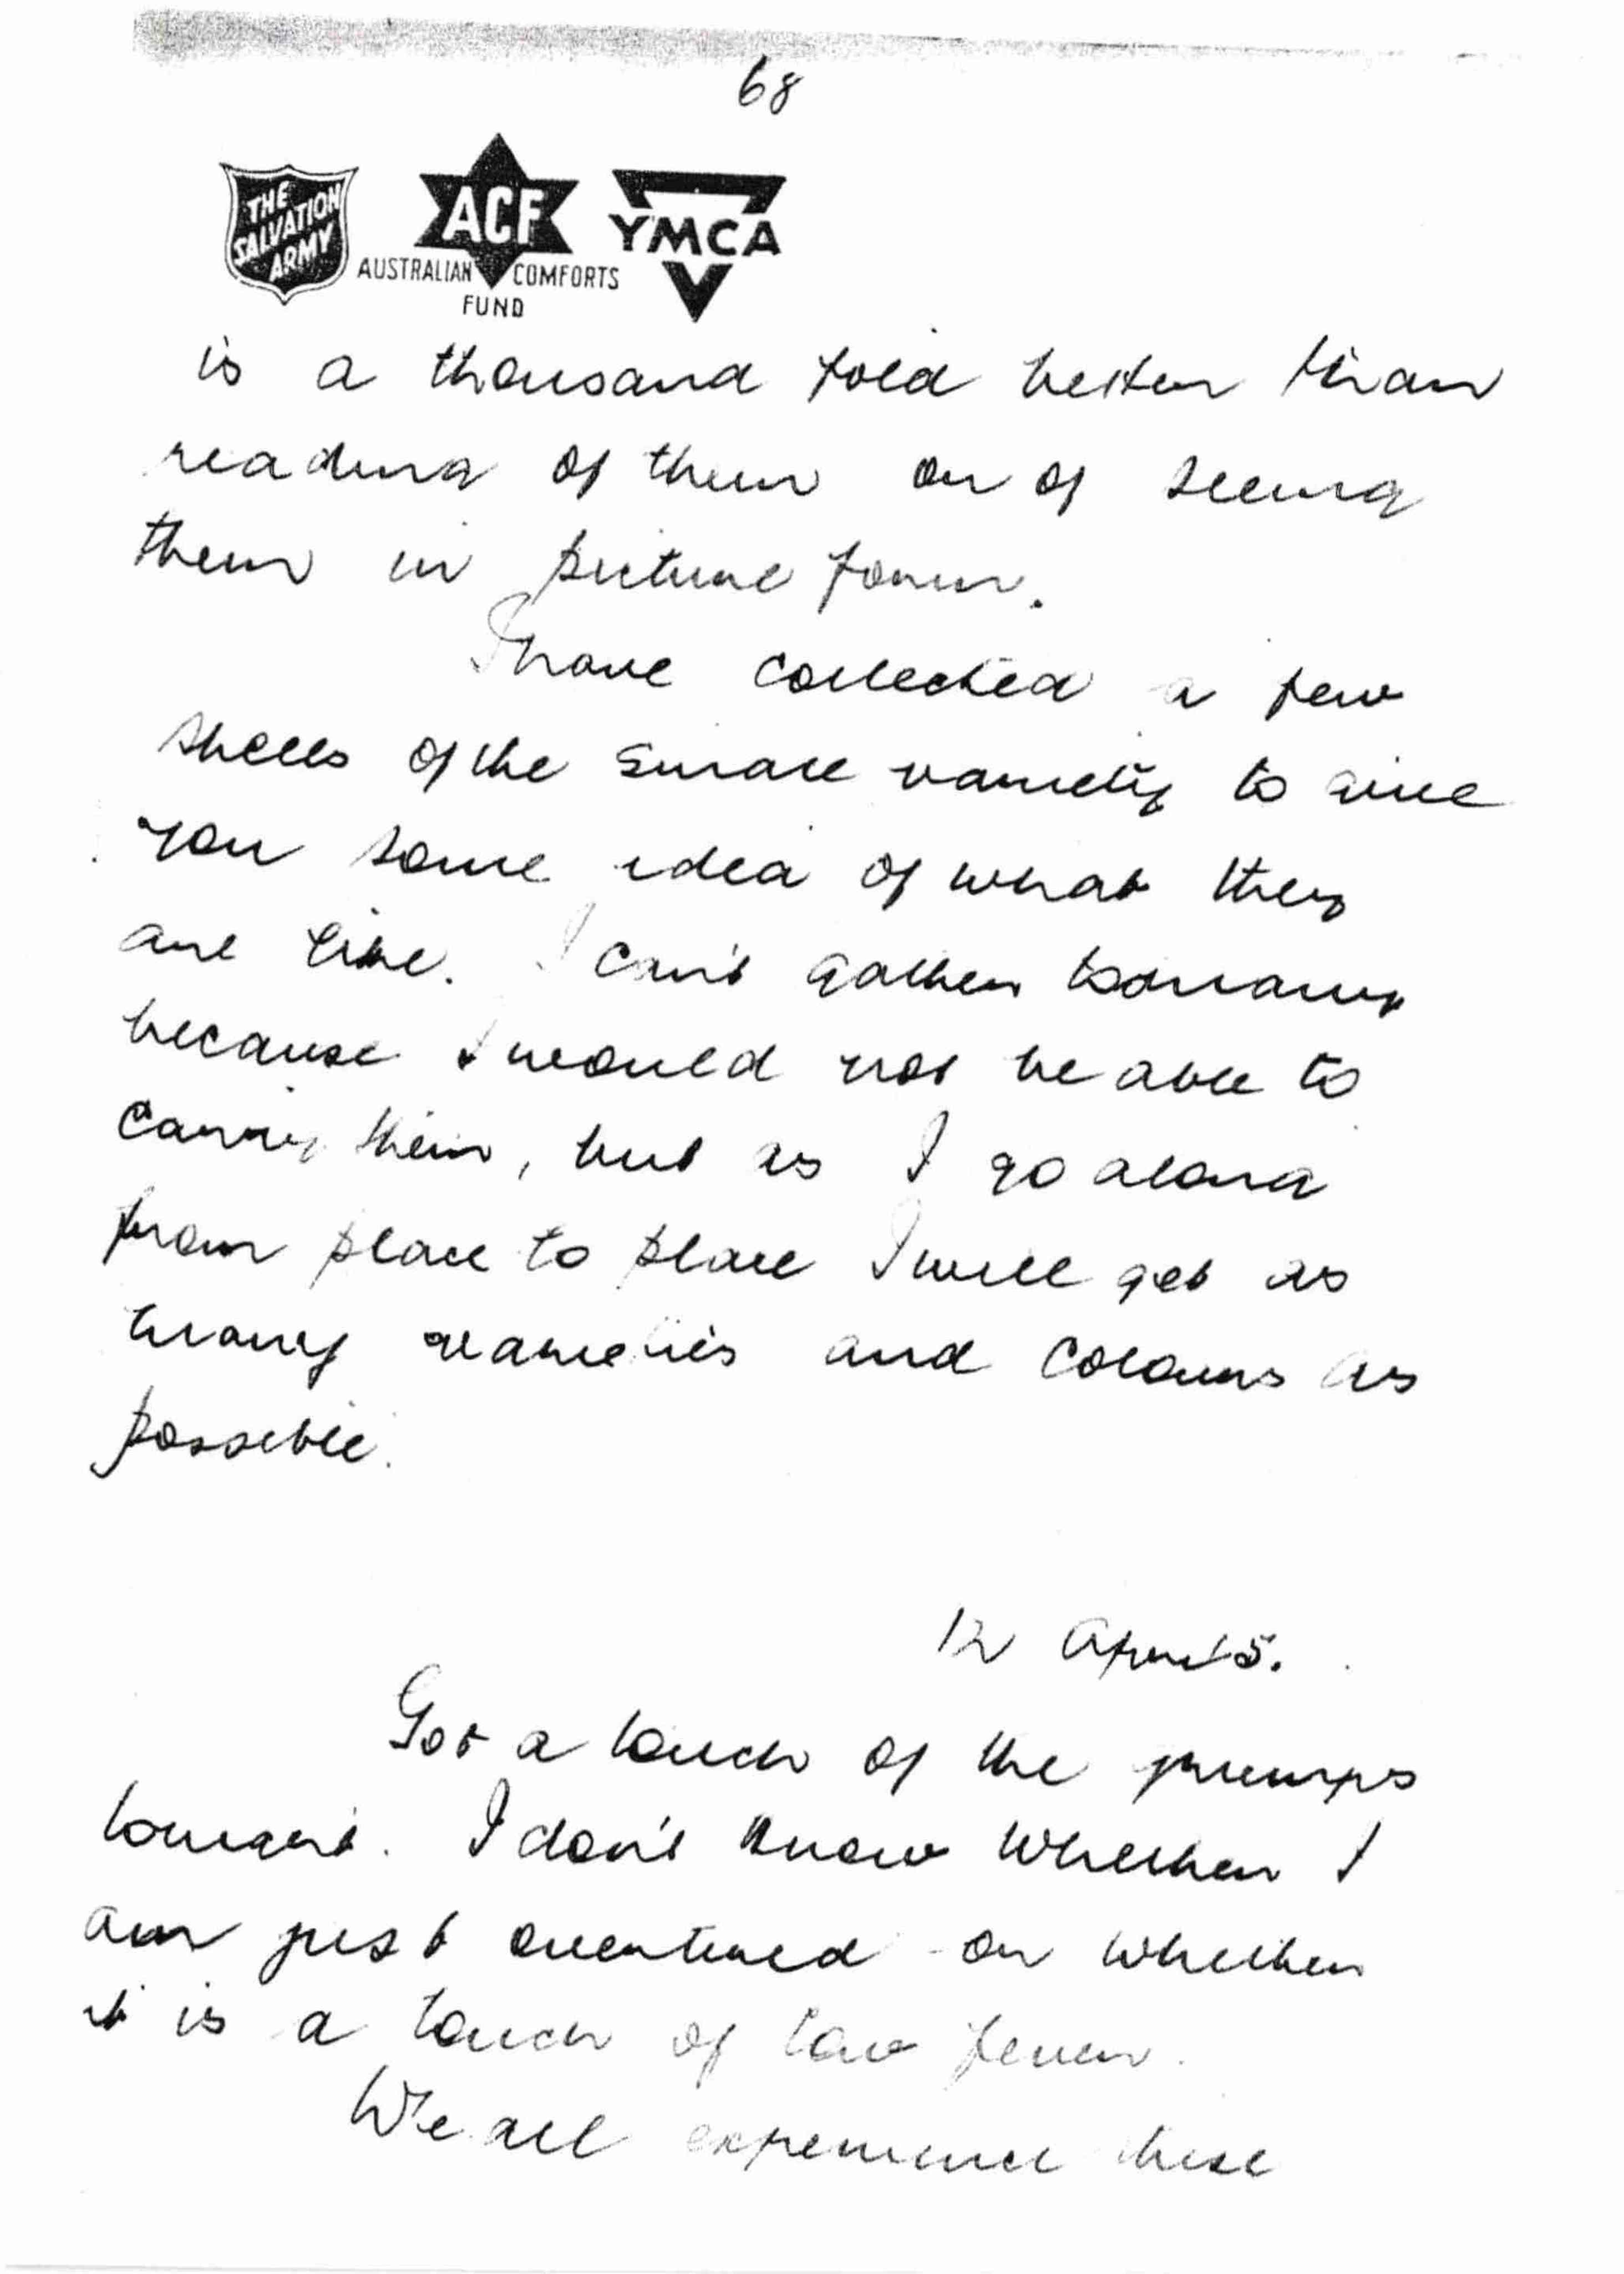 68
THE
SALVATION
ARMY
ACF
AUSTRALIAN COMFORTS
FUND
YMCA
is a thousand fold better than
reading of them or of seeing
them in picture form.
I have collected a few
shells of the small variety to give
you some idea of what they
are like. I can't gather to many
because I would not be able to
carry them, but as I go along
from place to place I will get as
many varieties and colours as
possible.
12 April 5.
Got a touch of the
tonight. I don't know whether I
am just overtired or whether
it is a touch of low fever.
We all experience these